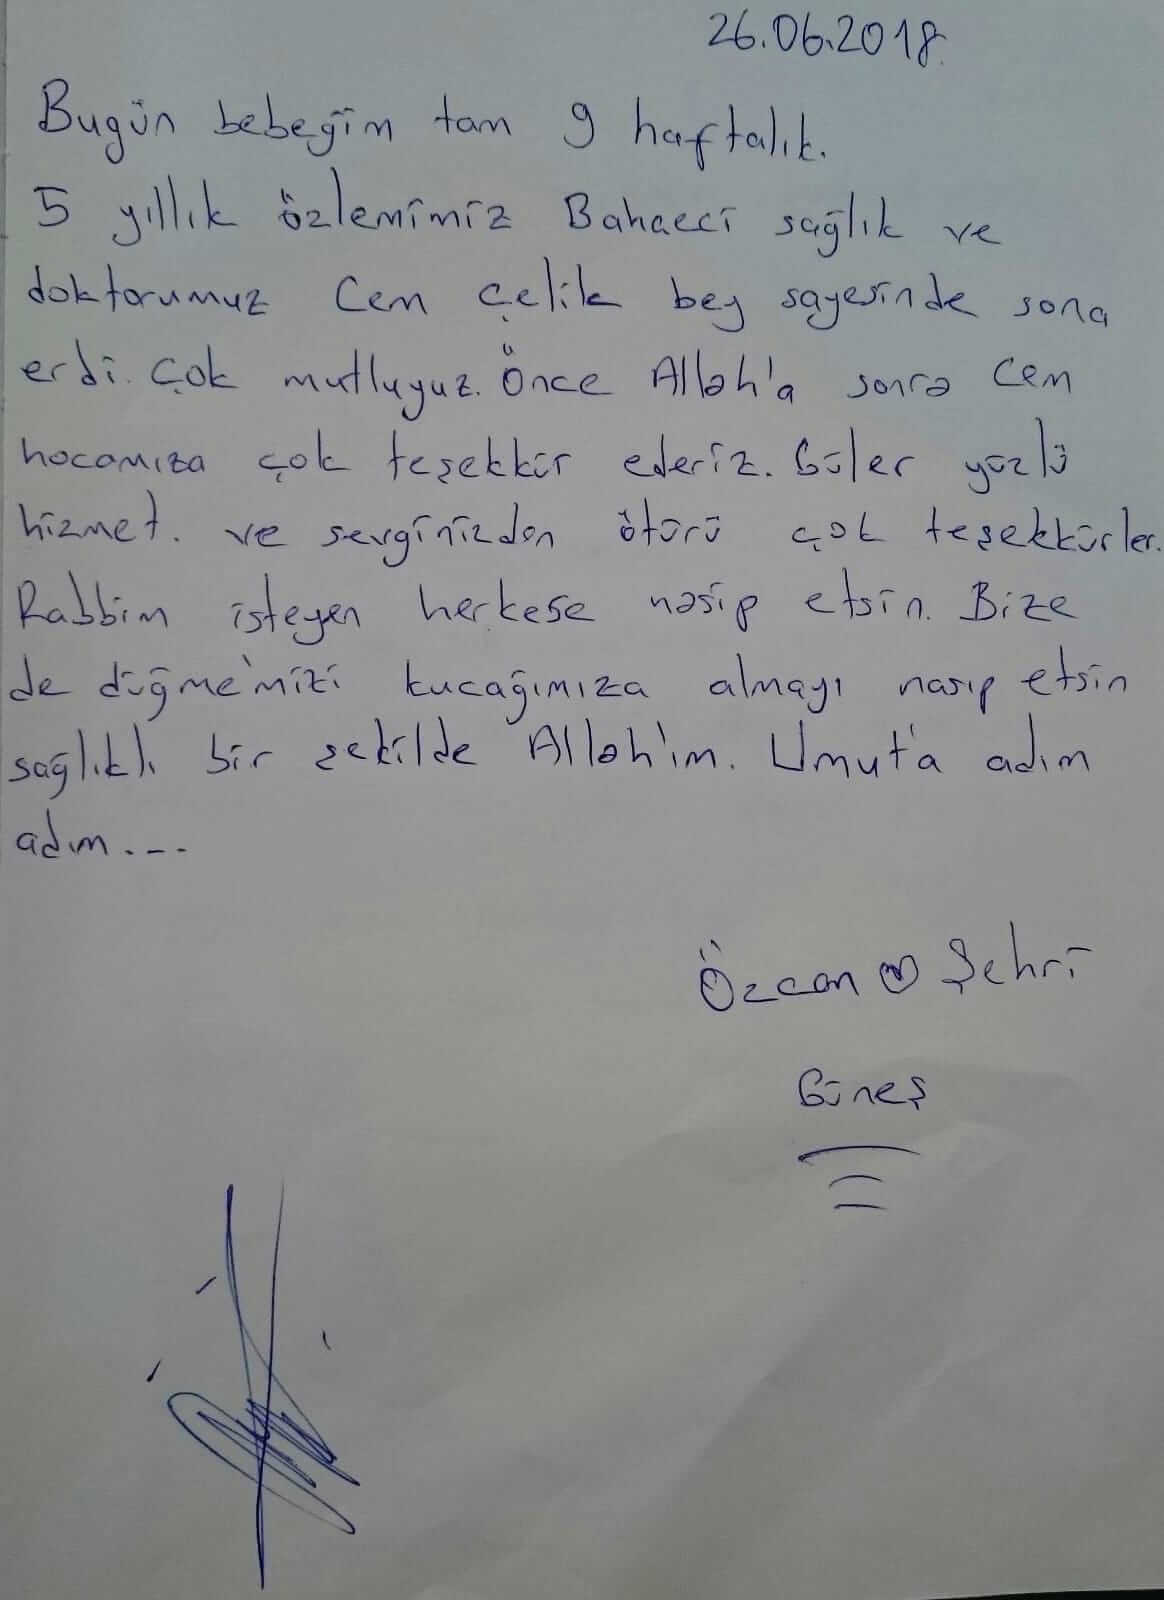 26.06.2018
Bugün bebeğim tam 9 haftalık.
5 yıllık özlemimiz Bahçeci sağlık ve
doktorumuz Cem Çelik bey sayesinde sona
erdi. Çok mutluyuz. Önce Allah'a sonra Cem
hocamıza çok teşekkür ederiz. Güler yüzlü
hizmet. ve sevginizden ötürü çok teşekkürler.
Rabbim isteyen herkese nasip etsin. Bize
de düğme'mizi kucağımıza almayı nasip etsin
sağlıklı bir şekilde Allah'ım. Umut'a adım
adım...
Özcan Şehri
Güneş